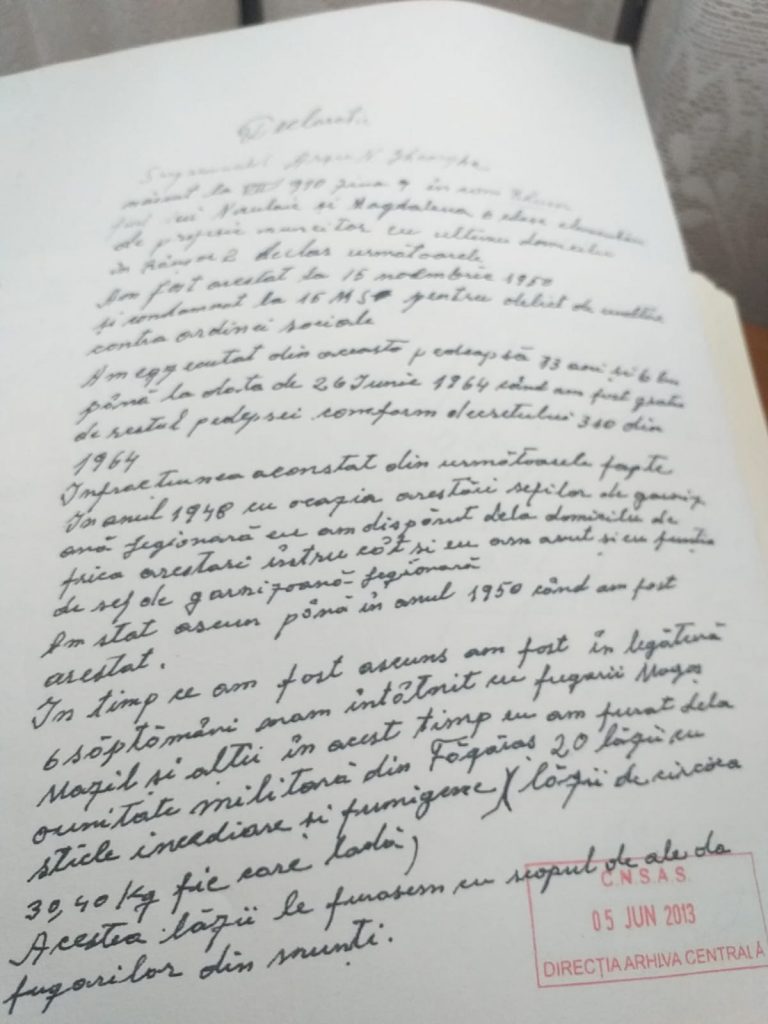 Declaratie
Gheorghe
născut la VIII 910 ziua 9 în com
lui Niculaie și Magdalena
de profesie muncitor cu ultimu domiciliu
în declar următoarele
Am fost arestat la 15 noembrie 1950
și condamnat la 15 MS pentru delict de uneltire
contra ordinei sociale
Am executat din aceasta pedeapsă 13 ani și 6 luni
până la data de 26 Iunie 1964 când am fost grațiat
de restul pedepsei comform decretului 310 din
1964
Infracțiunea aconstat din următoarele fapte
In anul 1948 cu ocazia arestări șefilor de garniz
oană legionară eu am dispărut dela domiciliu de
frica arestari întru cât și eu am avut și eu funcția
de șef de garnizoană legionară
Am stat ascun până în anul 1950 când am fost
arestat.
In timp ce am fost ascuns am fost în legătură
6 săptămâni întâlnit cu fugarii
Mazil și alții în acest timp eu am furat dela
ounitate militară din Făgăraș 20 lăzii cu
sticle incediare și fumigene (lăzii de circa
30,40 Kg fie care ladă)
Acestea lăzii le furasem cu scopul de ale da
fugarilor din munți.
C.N.S.A.S.
05 JUN 2013
DIRECȚIA ARHIVA CENTRALĂ